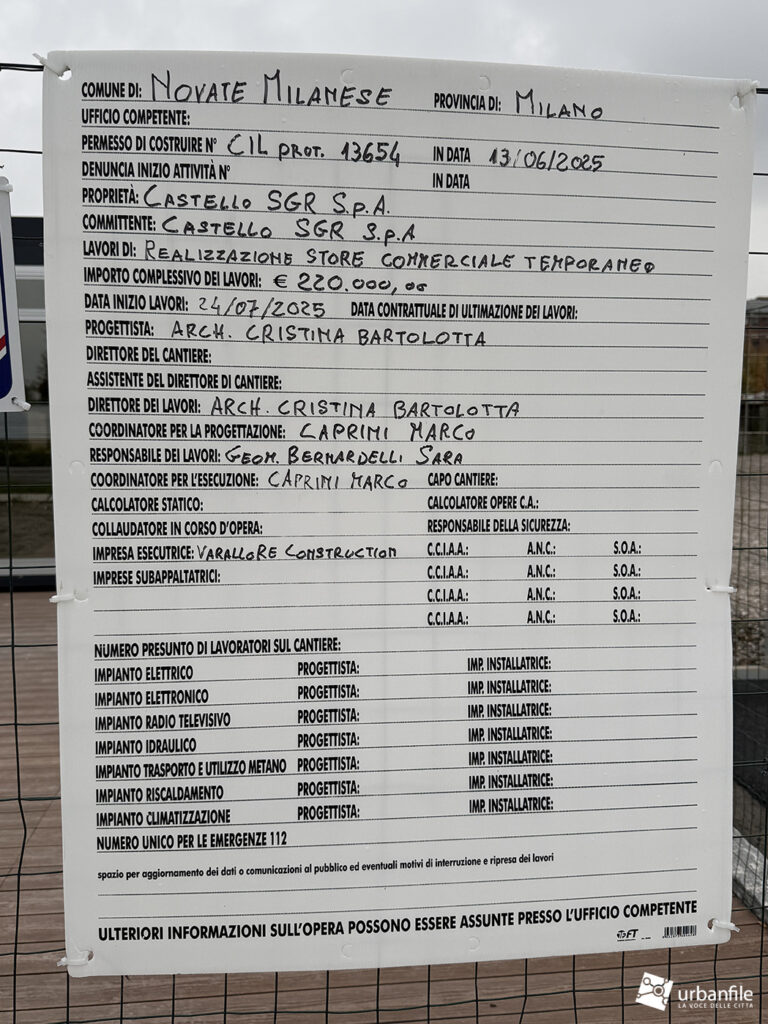 COMUNE DI: NOVATE MILANESE PROVINCIA DI: MILANO
UFFICIO COMPETENTE:
PERMESSO DI COSTRUIRE N° CIL prot. 13654 IN DATA 13/06/2025
DENUNCIA INIZIO ATTIVITÀ N° IN DATA
PROPRIETÀ: CASTELLO SGR S.p.A.
COMMITTENTE: CASTELLO SGR S.p.A
LAVORI DI: REALIZZAZIONE STORE COMMERCIALE TEMPORANEO
IMPORTO COMPLESSIVO DEI LAVORI: € 220.000,00
DATA INIZIO LAVORI: 24/07/2025 DATA CONTRATTUALE DI ULTIMAZIONE DEI LAVORI:
PROGETTISTA: ARCH. CRISTINA BARTOLOTTA
DIRETTORE DEL CANTIERE:
ASSISTENTE DEL DIRETTORE DI CANTIERE:
DIRETTORE DEI LAVORI: ARCH. CRISTINA BARTOLOTTA
COORDINATORE PER LA PROGETTAZIONE: CAPRINI MARCO
RESPONSABILE DEI LAVORI: GEOM. BERNARDELLI SARA
COORDINATORE PER L'ESECUZIONE: CAPRINI MARCO CAPO CANTIERE:
CALCOLATORE STATICO: CALCOLATORE OPERE C.A.:
COLLAUDATORE IN CORSO D'OPERA: RESPONSABILE DELLA SICUREZZA:
IMPRESA ESECUTRICE: VARALLORE CONSTRUCTION C.C.I.A.A.: A.N.C.: S.O.A.:
IMPRESE SUBAPPALTATRICI: C.C.I.A.A.: A.N.C.: S.O.A.:
C.C.I.A.A.: A.N.C.: S.O.A.:
C.C.I.A.A.: A.N.C.: S.O.A.:
NUMERO PRESUNTO DI LAVORATORI SUL CANTIERE:
IMPIANTO ELETTRICO PROGETTISTA: IMP. INSTALLATRICE:
IMPIANTO ELETTRONICO PROGETTISTA: IMP. INSTALLATRICE:
IMPIANTO RADIO TELEVISIVO PROGETTISTA: IMP. INSTALLATRICE:
IMPIANTO IDRAULICO PROGETTISTA: IMP. INSTALLATRICE:
IMPIANTO TRASPORTO E UTILIZZO METANO PROGETTISTA: IMP. INSTALLATRICE:
IMPIANTO RISCALDAMENTO PROGETTISTA: IMP. INSTALLATRICE:
IMPIANTO CLIMATIZZAZIONE PROGETTISTA: IMP. INSTALLATRICE:
NUMERO UNICO PER LE EMERGENZE 112
spazio per aggiornamento dei dati o comunicazioni al pubblico ed eventuali motivi di interruzione e ripresa dei lavori
ULTERIORI INFORMAZIONI SULL'OPERA POSSONO ESSERE ASSUNTE PRESSO L'UFFICIO COMPETENTE
FT
urbanfile
LA VOCE DELLE CITTÀ